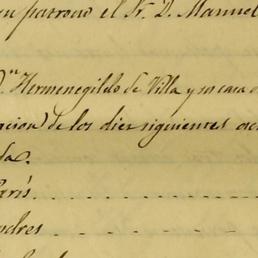 su patron el Sr. D. Manuel
D.n Hermenegildo de Villa y su casa
acion de los diez siguientes
da.
Paris
ondres